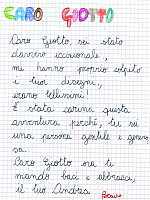 CARO GIOTTO
Caro Giotto, sei stato
davvero eccezionale,
mi hanno proprio colpito
i tuoi disegni,
erano bellissimi!
È stata carina questa
avventura perché, tu sei
una persona gentile e genero
sa.
Caro Giotto ora ti
mando baci e abbracci,
il tuo Andrea
Bravo